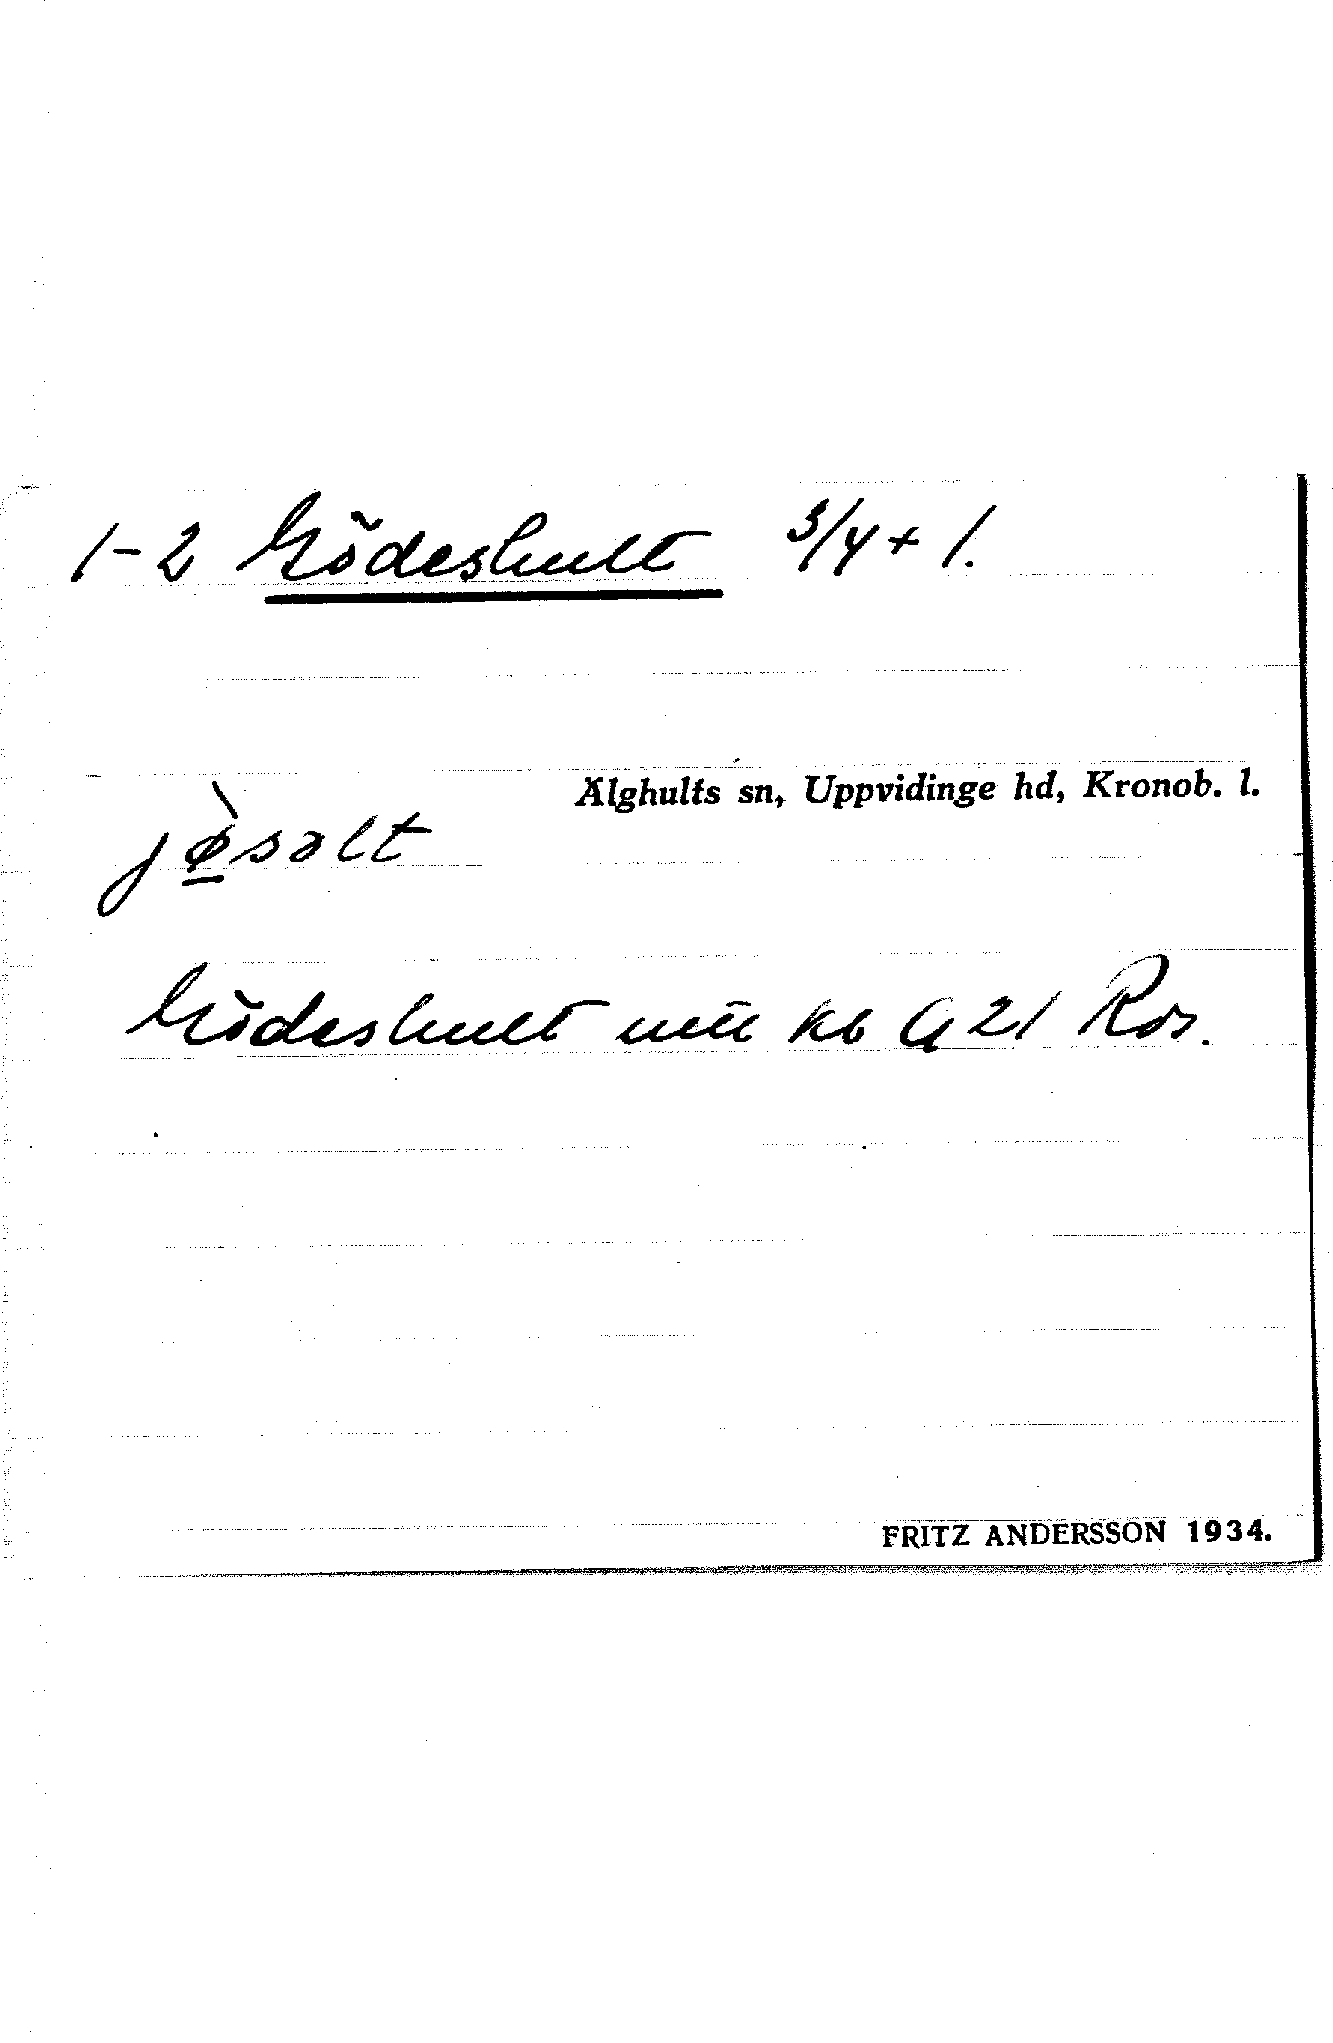 1-2 Gödeshult 3/4 + 1.
Älghults sn, Uppvidinge hd, Kronob. l.
jø̱̀səlt
Gödeshult kb A 21 Ros.
FRITZ ANDERSSON 1934.